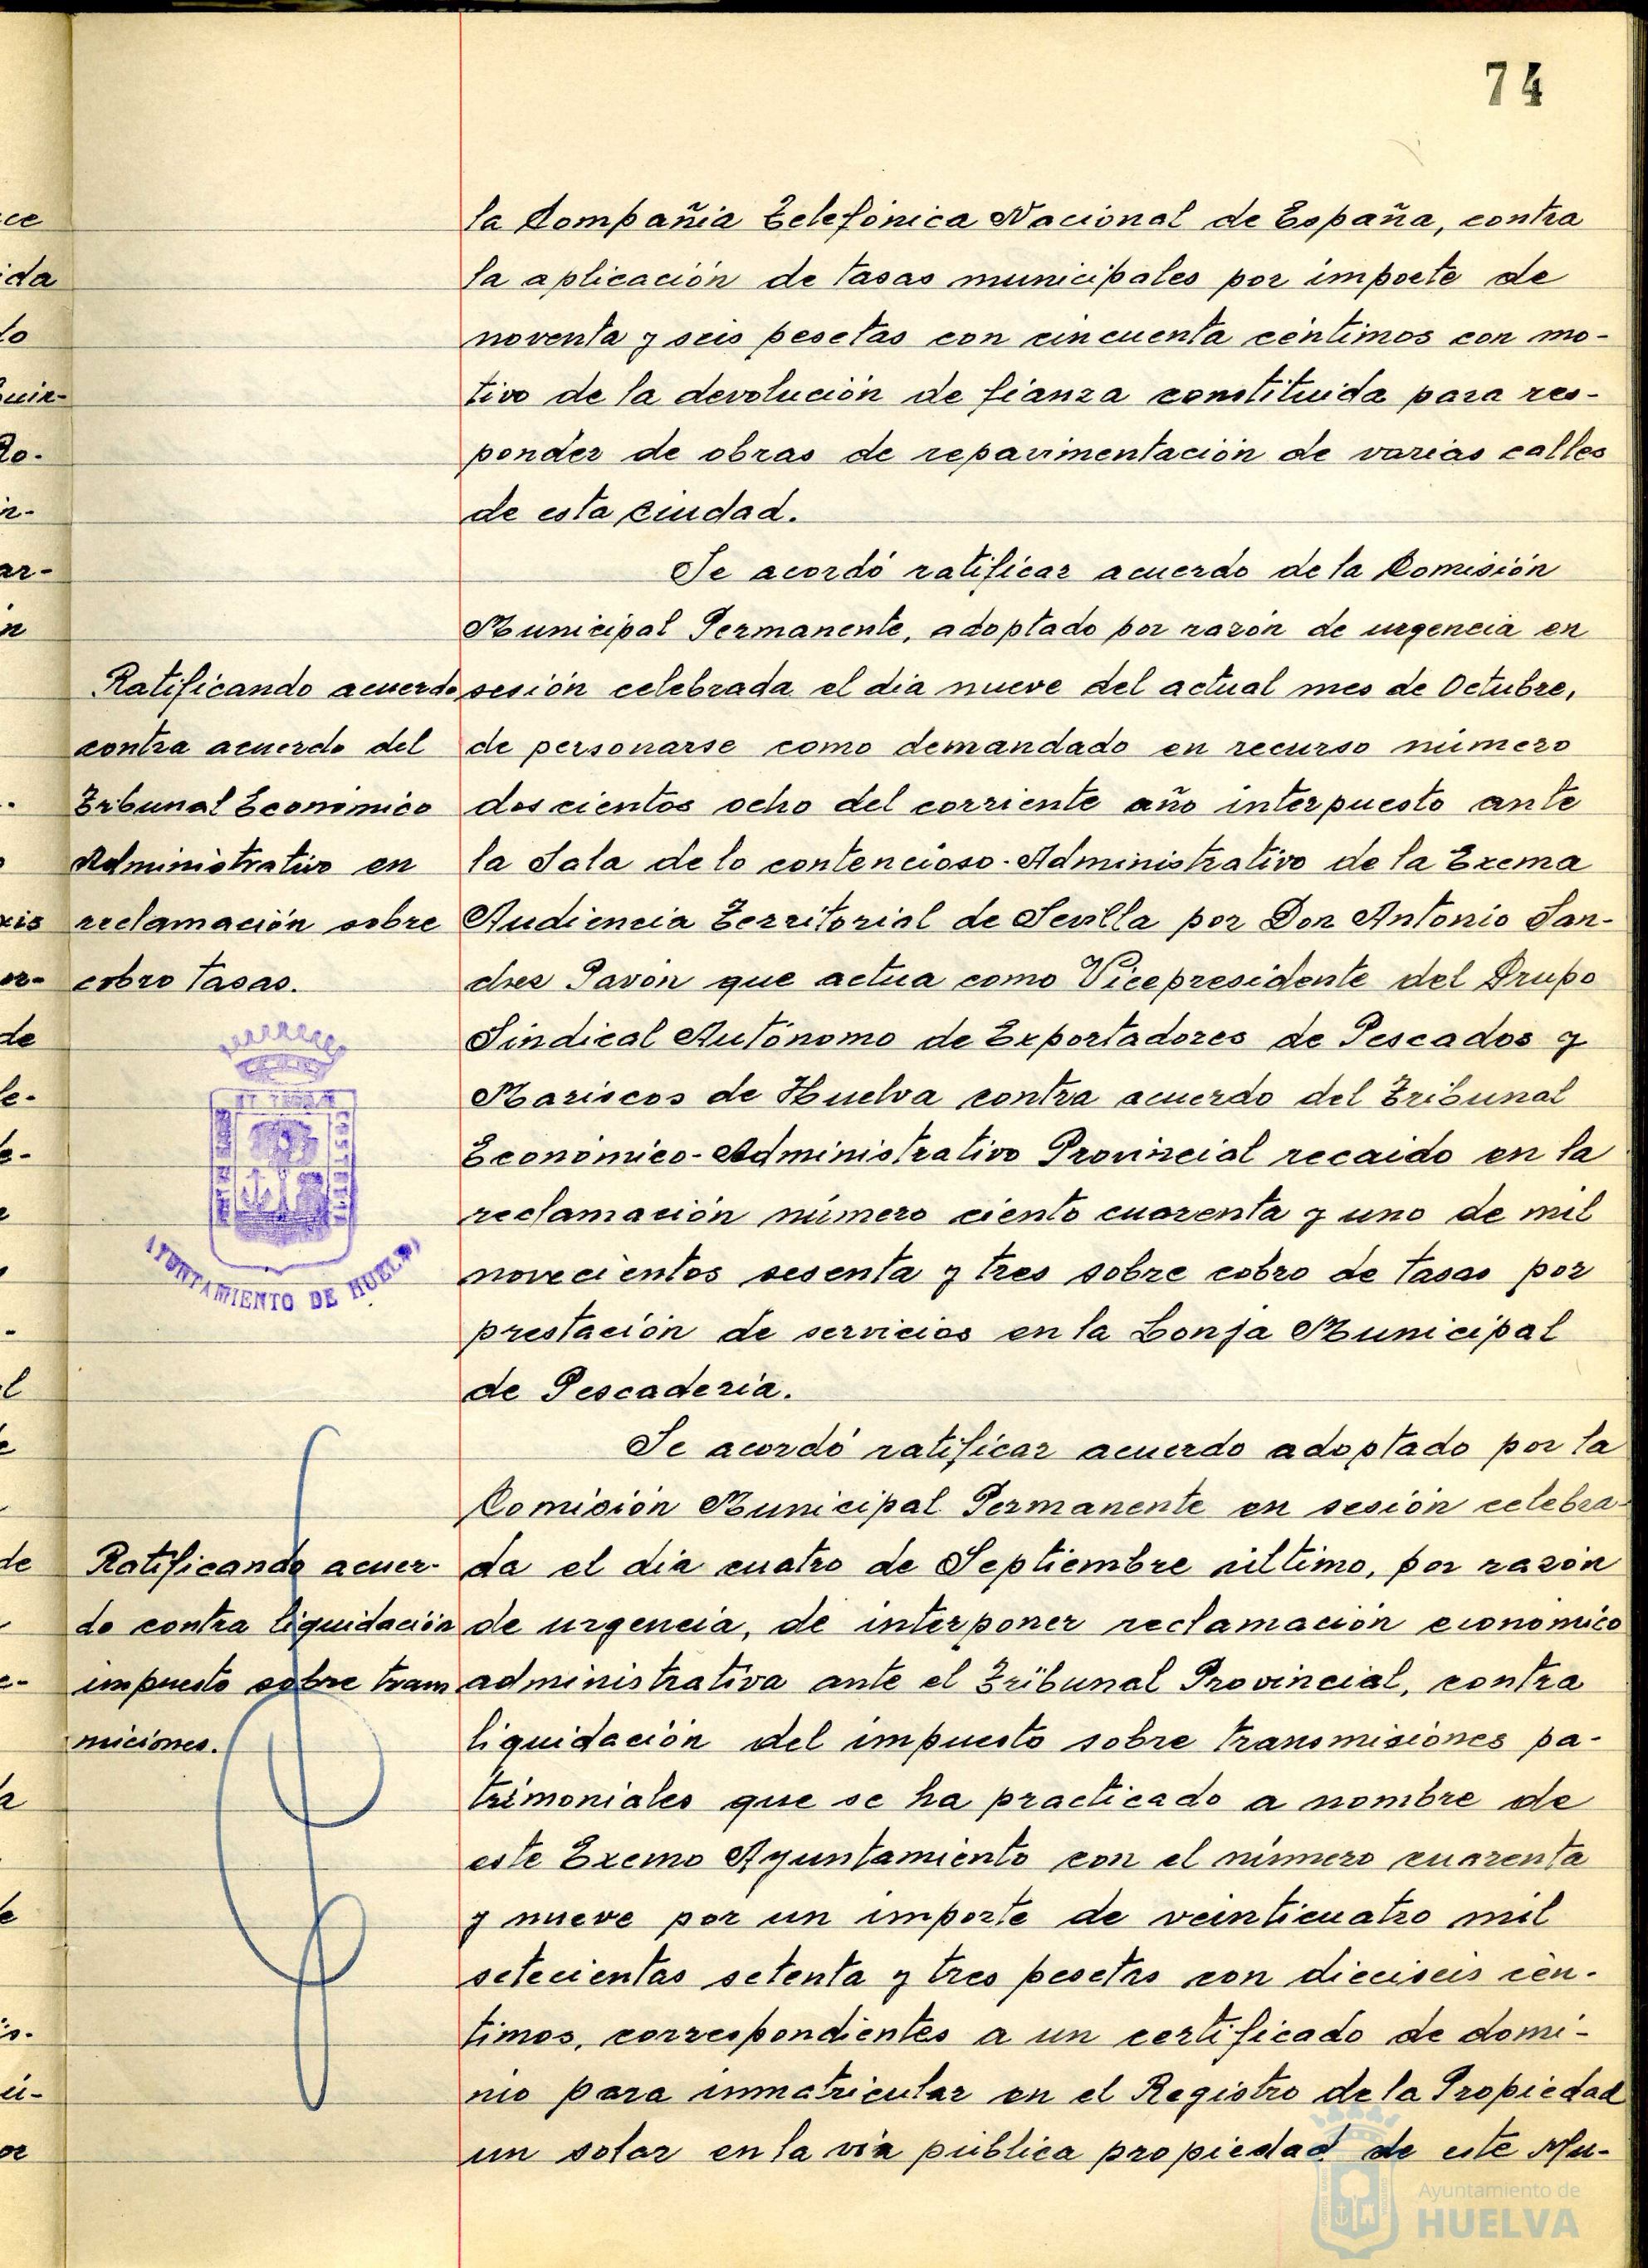 74
ce
ida
lo
Ro.
ar-
xis
de
la Compañia Telefónica Nacional de España, contra
la aplicación de tasas municipales por importe de
noventa y seis pesetas con cincuenta céntimos con mo-
tivo de la devolución de fianza constituida para res-
ponder de obras de repavimentación de varias calles
de esta ciudad.
Se acordó ratificar acuerdo de la Comisión
Municipal Permanente, adoptado por razón de urgencia en
Ratificando acuerdo
contra acuerdo del
Tribunal Económico
Administrativo en
reclamación sobre
cobro tasas.
sesión celebrada el dia nueve del actual mes de Octubre,
de personarse como demandado en recurso número
doscientos ocho del corriente año interpuesto ante
la Sala de lo contencioso-Administrativo de la Excma
Audiencia Territorial de Sevilla por Don Antonio San-
chez Pavón que actua como Vicepresidente del Grupo
Sindical Autónomo de Exportadores de Pescados y
Mariscos de Huelva contra acuerdo del Tribunal
Económico-Administrativo Provincial recaido en la
reclamación número ciento cuarenta y uno de mil
novecientos sesenta y tres sobre cobro de tasas por
prestación de servicios en la Lonja Municipal
de Pescaderia.
AYUNTAMIENTO DE HUELVA
Se acordó ratificar acuerdo adoptado por la
Comisión Municipal Permanente en sesión celebra-
Ratificando acuer-
do contra liquidación
impuesto sobre tram
miciones.
da el dia cuatro de Septiembre último, por razón
de urgencia, de interponer reclamación económico
administrativa ante el Tribunal Provincial, contra
liquidación del impuesto sobre transmisiones pa-
trimoniales que se ha practicado a nombre de
este Excmo Ayuntamiento con el número cuarenta
y nueve por un importe de veinticuatro mil
setecientas setenta y tres pesetas con dieciseis cén-
timos, correspondientes a un certificado de domi-
nio para inmatricular en el Registro de la Propiedad
un solar en la vía pública propiedad de este Mu-
Ayuntamiento de
HUELVA